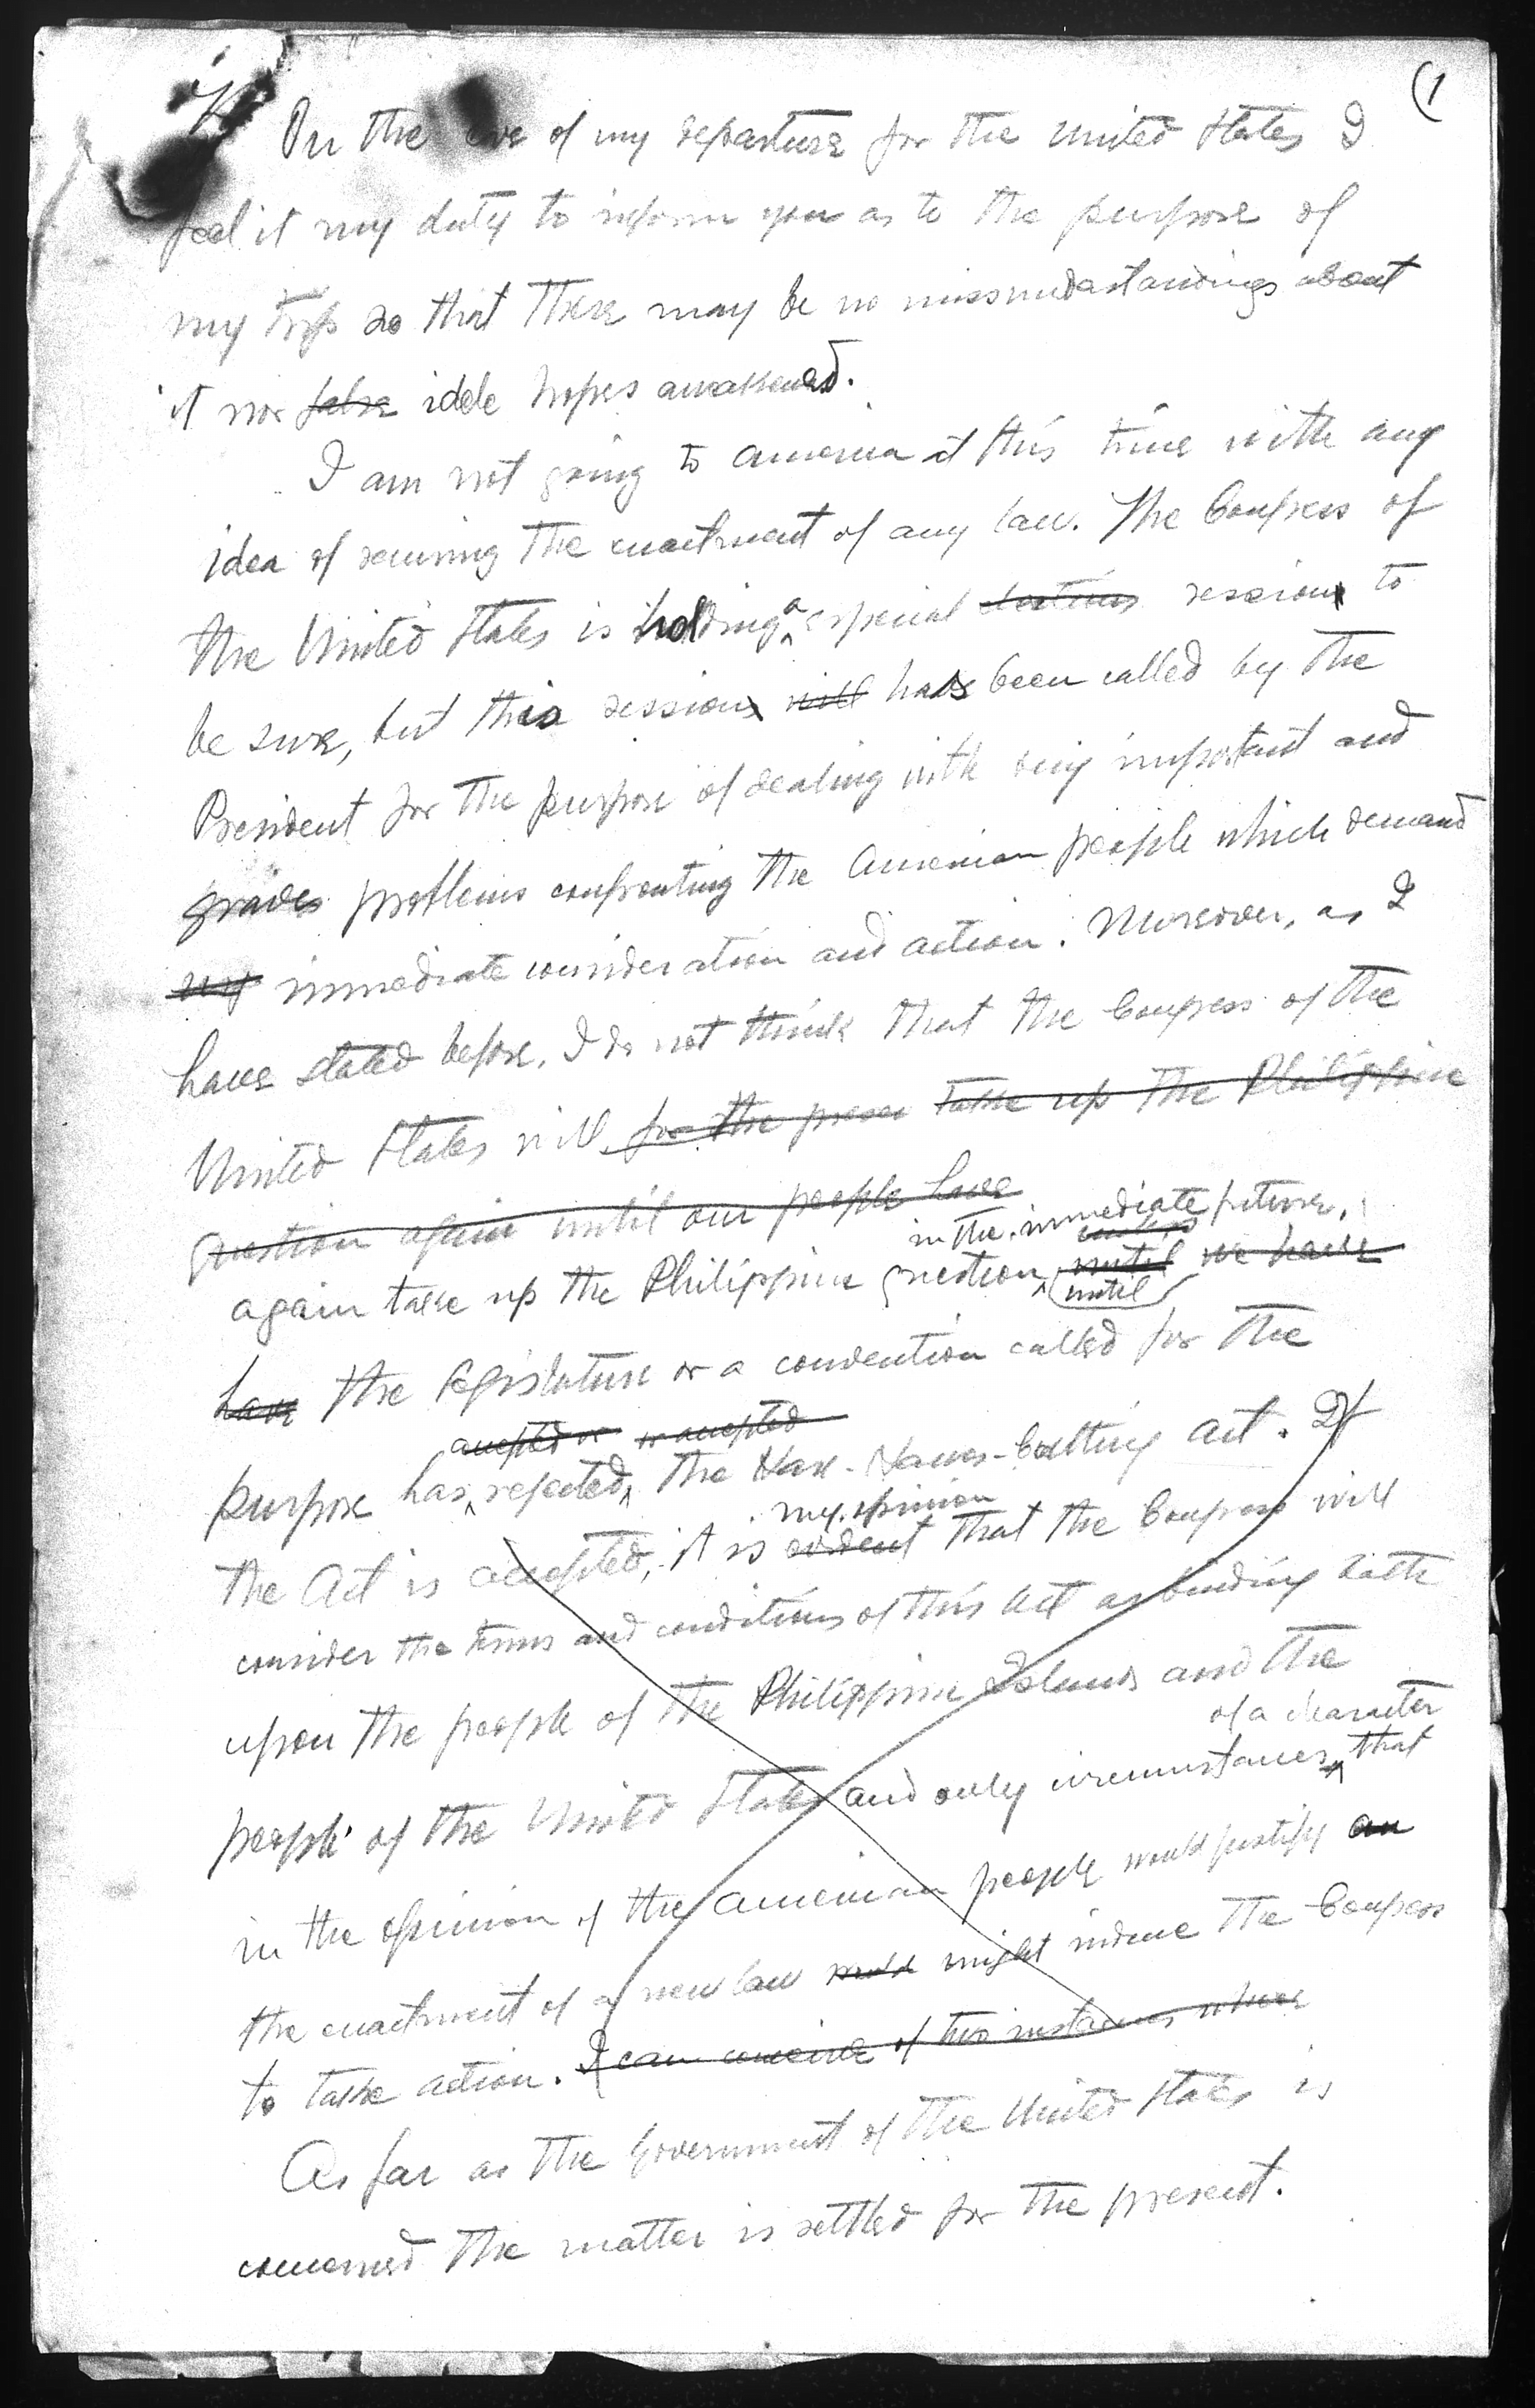 (1
On the eve of my departure for the United States I
feel it my duty to inform you as to the purpose of
my trip so that there may be no missunderstandings about
it nor false idle hopes awakened.
I am not going to America at this time with any
idea of securing the enactment of any law. The Congress of
the United States is holding a especial session to
be sure, but this session will has been called by the
President for the purpose of dealing with very important and
graves problems confronting the American people which demand
immediate consideration and action. Moreover, as I
have stated before, I do not think that the Congress of the
United States will for the presen take up the Philippine
question again until our people have
in the immediate future,
again take up the Philippine question until we have
until
have the legislature or a convention called for the
accepted or or accepted
purpose has rejected the Hare-Hawes-Cutting Act. If
my opinion
the Act is accepted, it is evident that the Congress will
consider the terms and conditions of this Act as binding both
upon the people of the Philippine Islands and the
of a character
people of the United States and only circumstances that
in the opinion of the American people would justify an
the enactment of a new law would might induce the Congress
to take action. I can conceive of two instances where
As far as the Government of the United States is
concerned the matter is settled for the present.